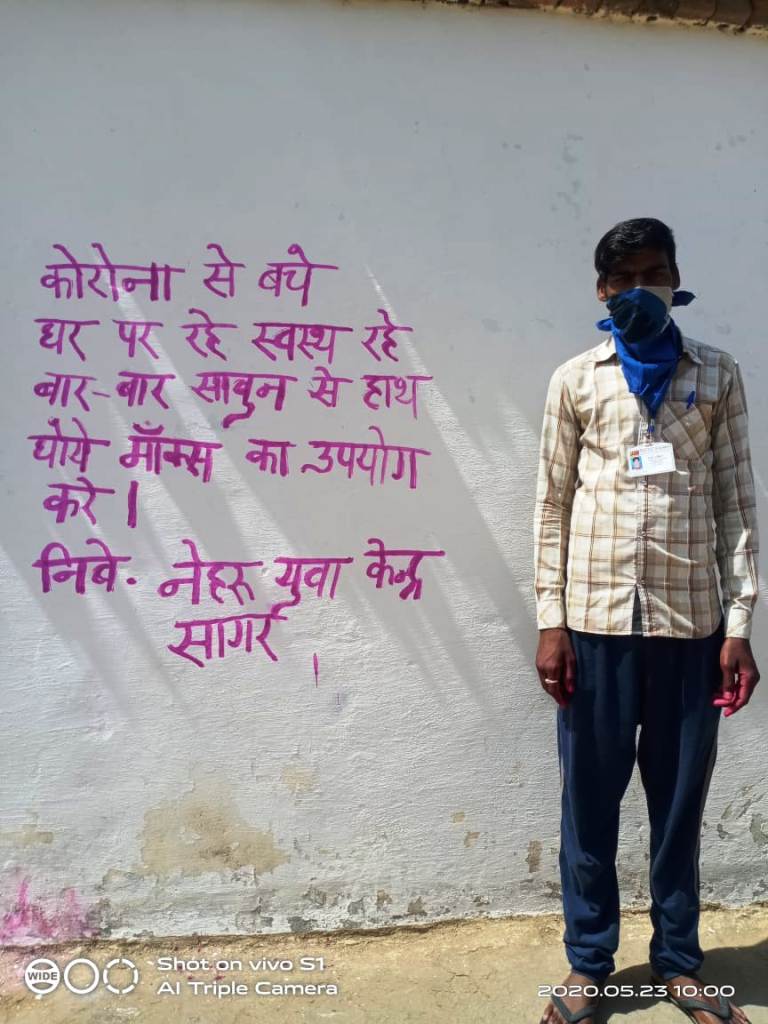 कोरोना से बचे
घर पर रहे स्वस्थ रहे
बार-बार साबुन से हाथ
घोये मॉंक्स का उपयोग
करे।
निवे. नेहरू युवा केन्द्र
सागर
WIDE
Shot on vivo S1
AI Triple Camera
2020.05.23 10:00